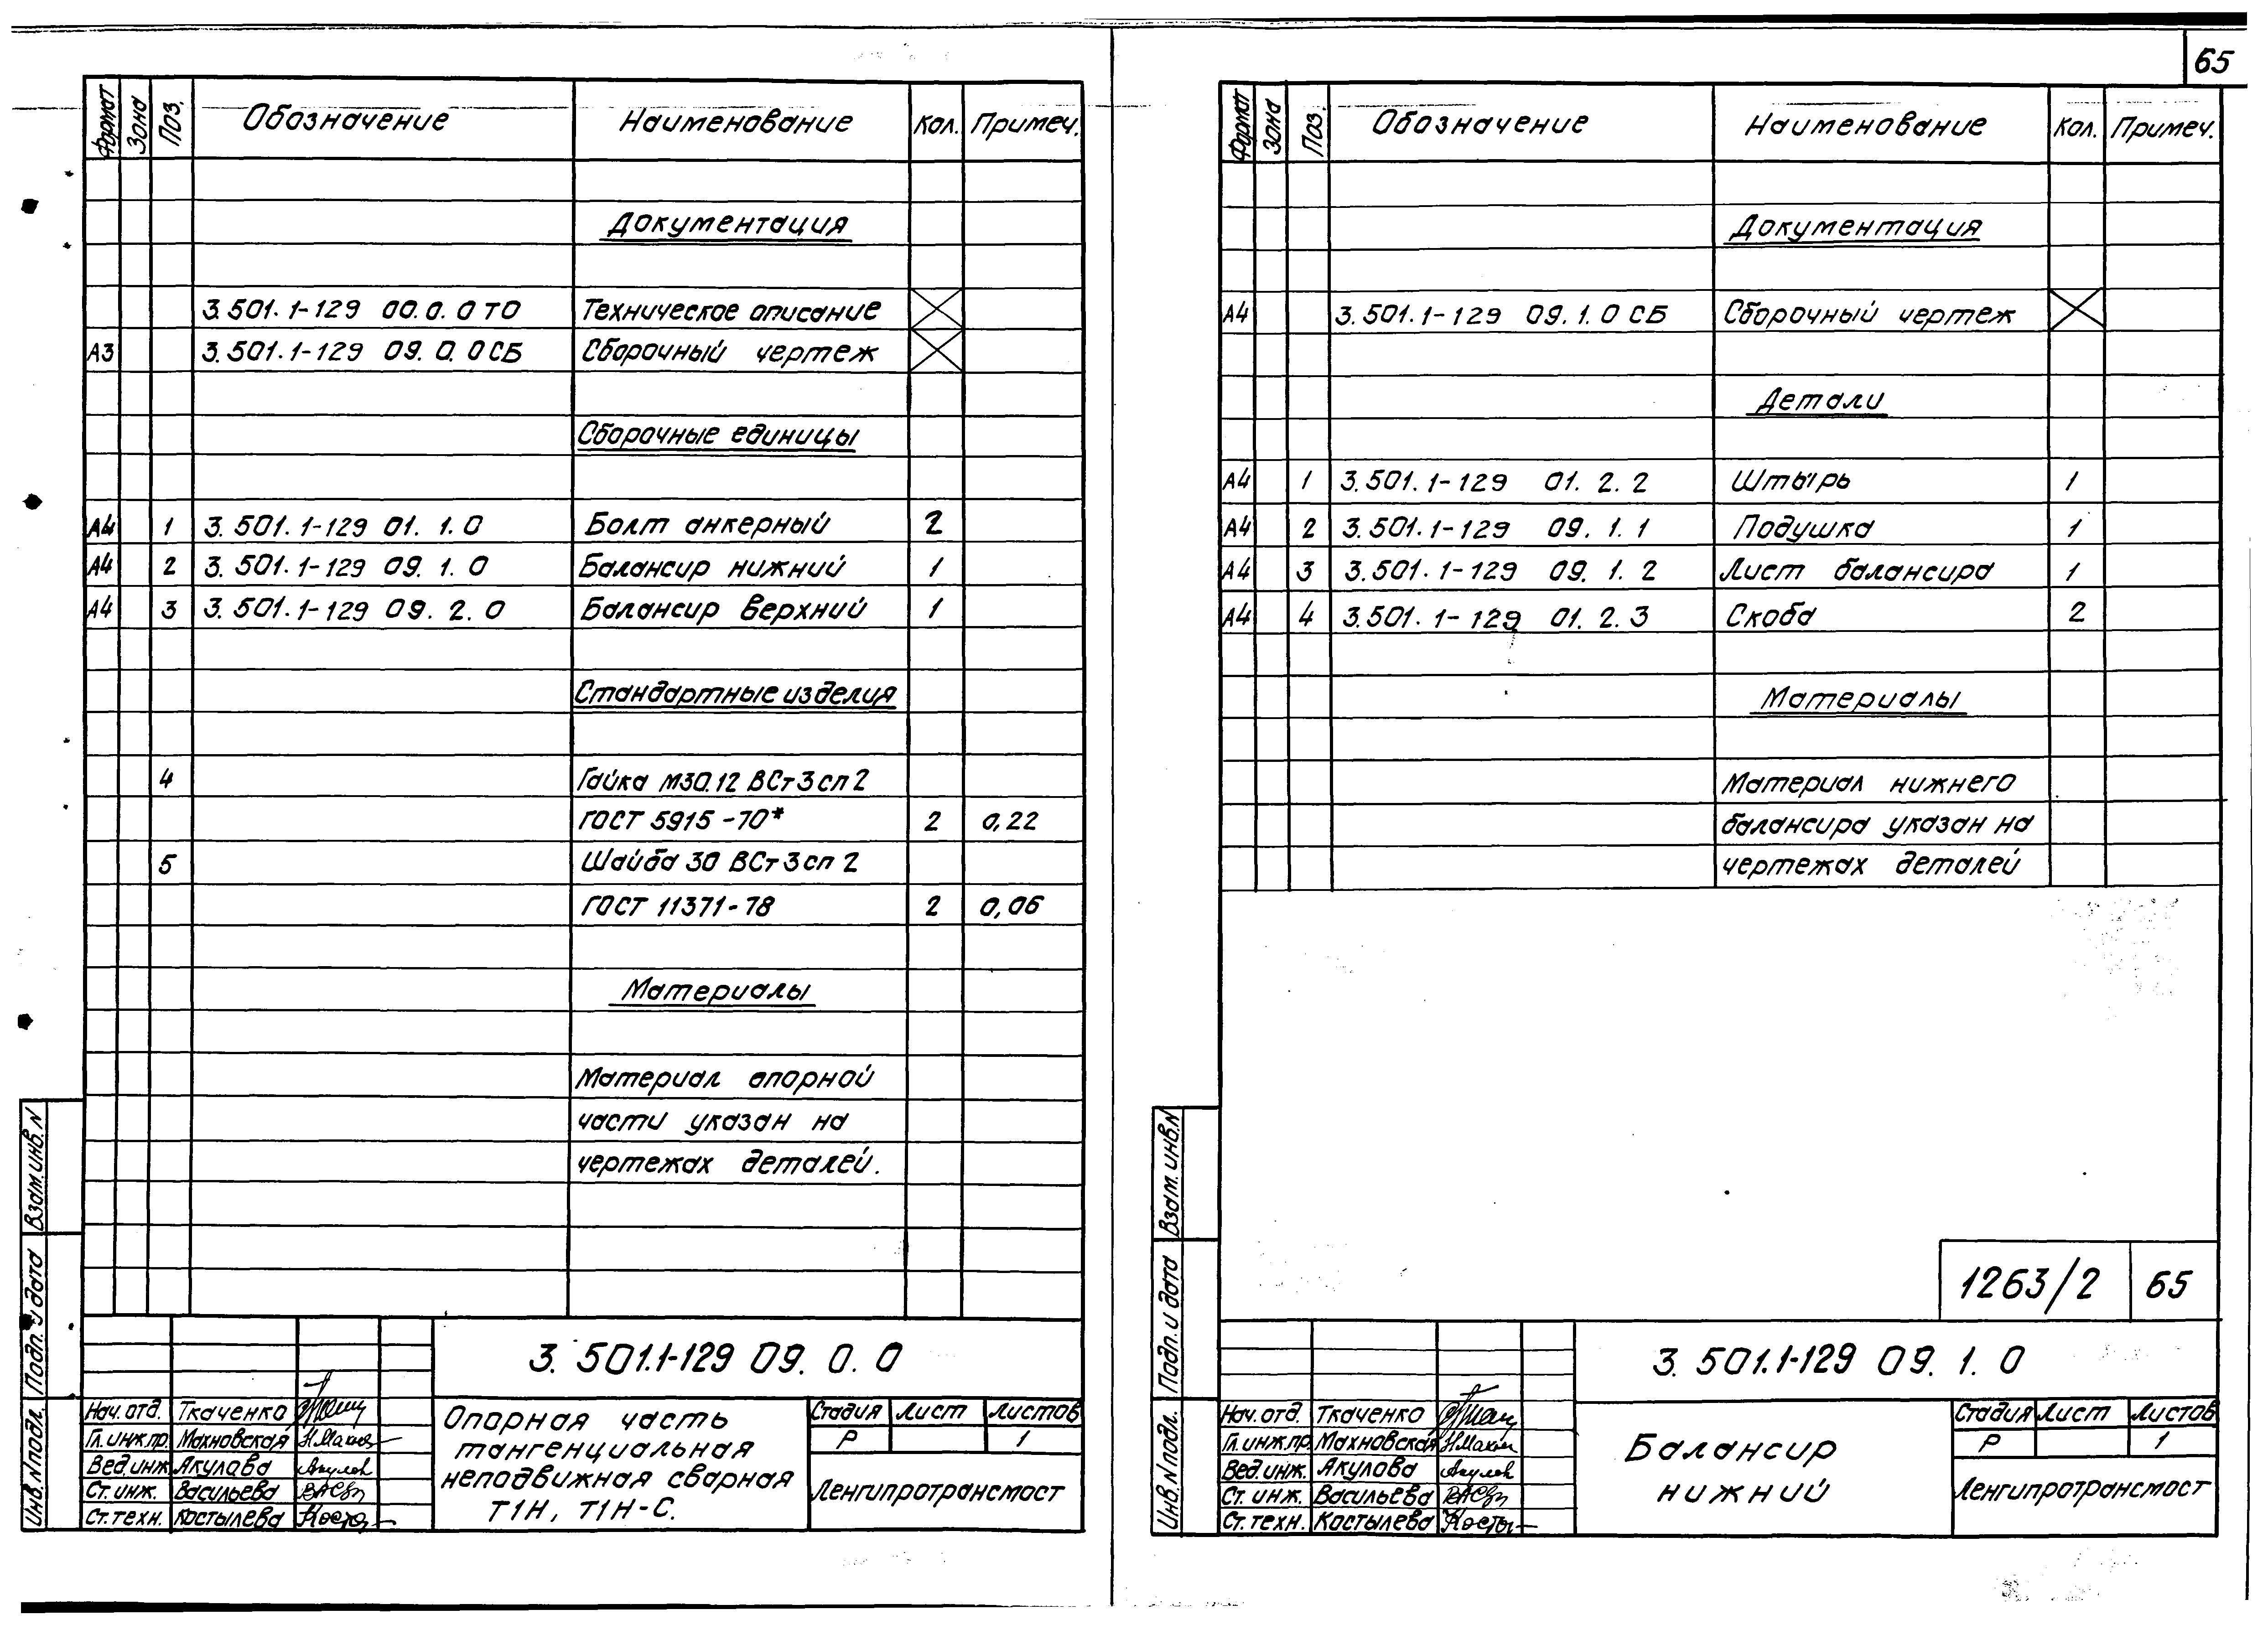 65
Формат Зона Поз. Обозначение Наименование Кол. Примеч.
Документация
3.501.1-129 00.0.0 ТО Техническое описание
А3 3.501.1-129 09.0.0 СБ Сборочный чертеж
Сборочные единицы
А4 1 3.501.1-129 01.1.0 Болт анкерный 2
А4 2 3.501.1-129 09.1.0 Балансир нижний 1
А4 3 3.501.1-129 09.2.0 Балансир верхний 1
Стандартные изделия
4 Гайка М30.12 ВСт3сп2
ГОСТ 5915-70* 2 0,22
5 Шайба 30 ВСт3сп2
ГОСТ 11371-78 2 0,06
Материалы
Материал опорной
части указан на
чертежах деталей.
Взам. инв. N
Подп. и дата
Инв. N подл.
3.501.1-129 09.0.0
Нач. отд. Ткаченко
Гл. инж. пр. Махновская
Вед. инж. Акулова
Ст. инж. Васильева
Ст. техн. Костылева
Опорная часть
тангенциальная
неподвижная сварная
Т1Н, Т1Н-С.
Стадия Лист Листов
Р 1
Ленгипротрансмост
Формат Зона Поз. Обозначение Наименование Кол. Примеч.
Документация
А4 3.501.1-129 09.1.0 СБ Сборочный чертеж
Детали
А4 1 3.501.1-129 01.2.2 Штырь 1
А4 2 3.501.1-129 09.1.1 Подушка 1
А4 3 3.501.1-129 09.1.2 Лист балансира 1
А4 4 3.501.1-129 01.2.3 Скоба 2
Материалы
Материал нижнего
балансира указан на
чертежах деталей
1263/2 65
Взам. инв. N
Подп. и дата
Инв. N подл.
3.501.1-129 09.1.0
Нач. отд. Ткаченко
Гл. инж. пр. Махновская
Вед. инж. Акулова
Ст. инж. Васильева
Ст. техн. Костылева
Балансир
нижний
Стадия Лист Листов
Р 1
Ленгипротрансмост